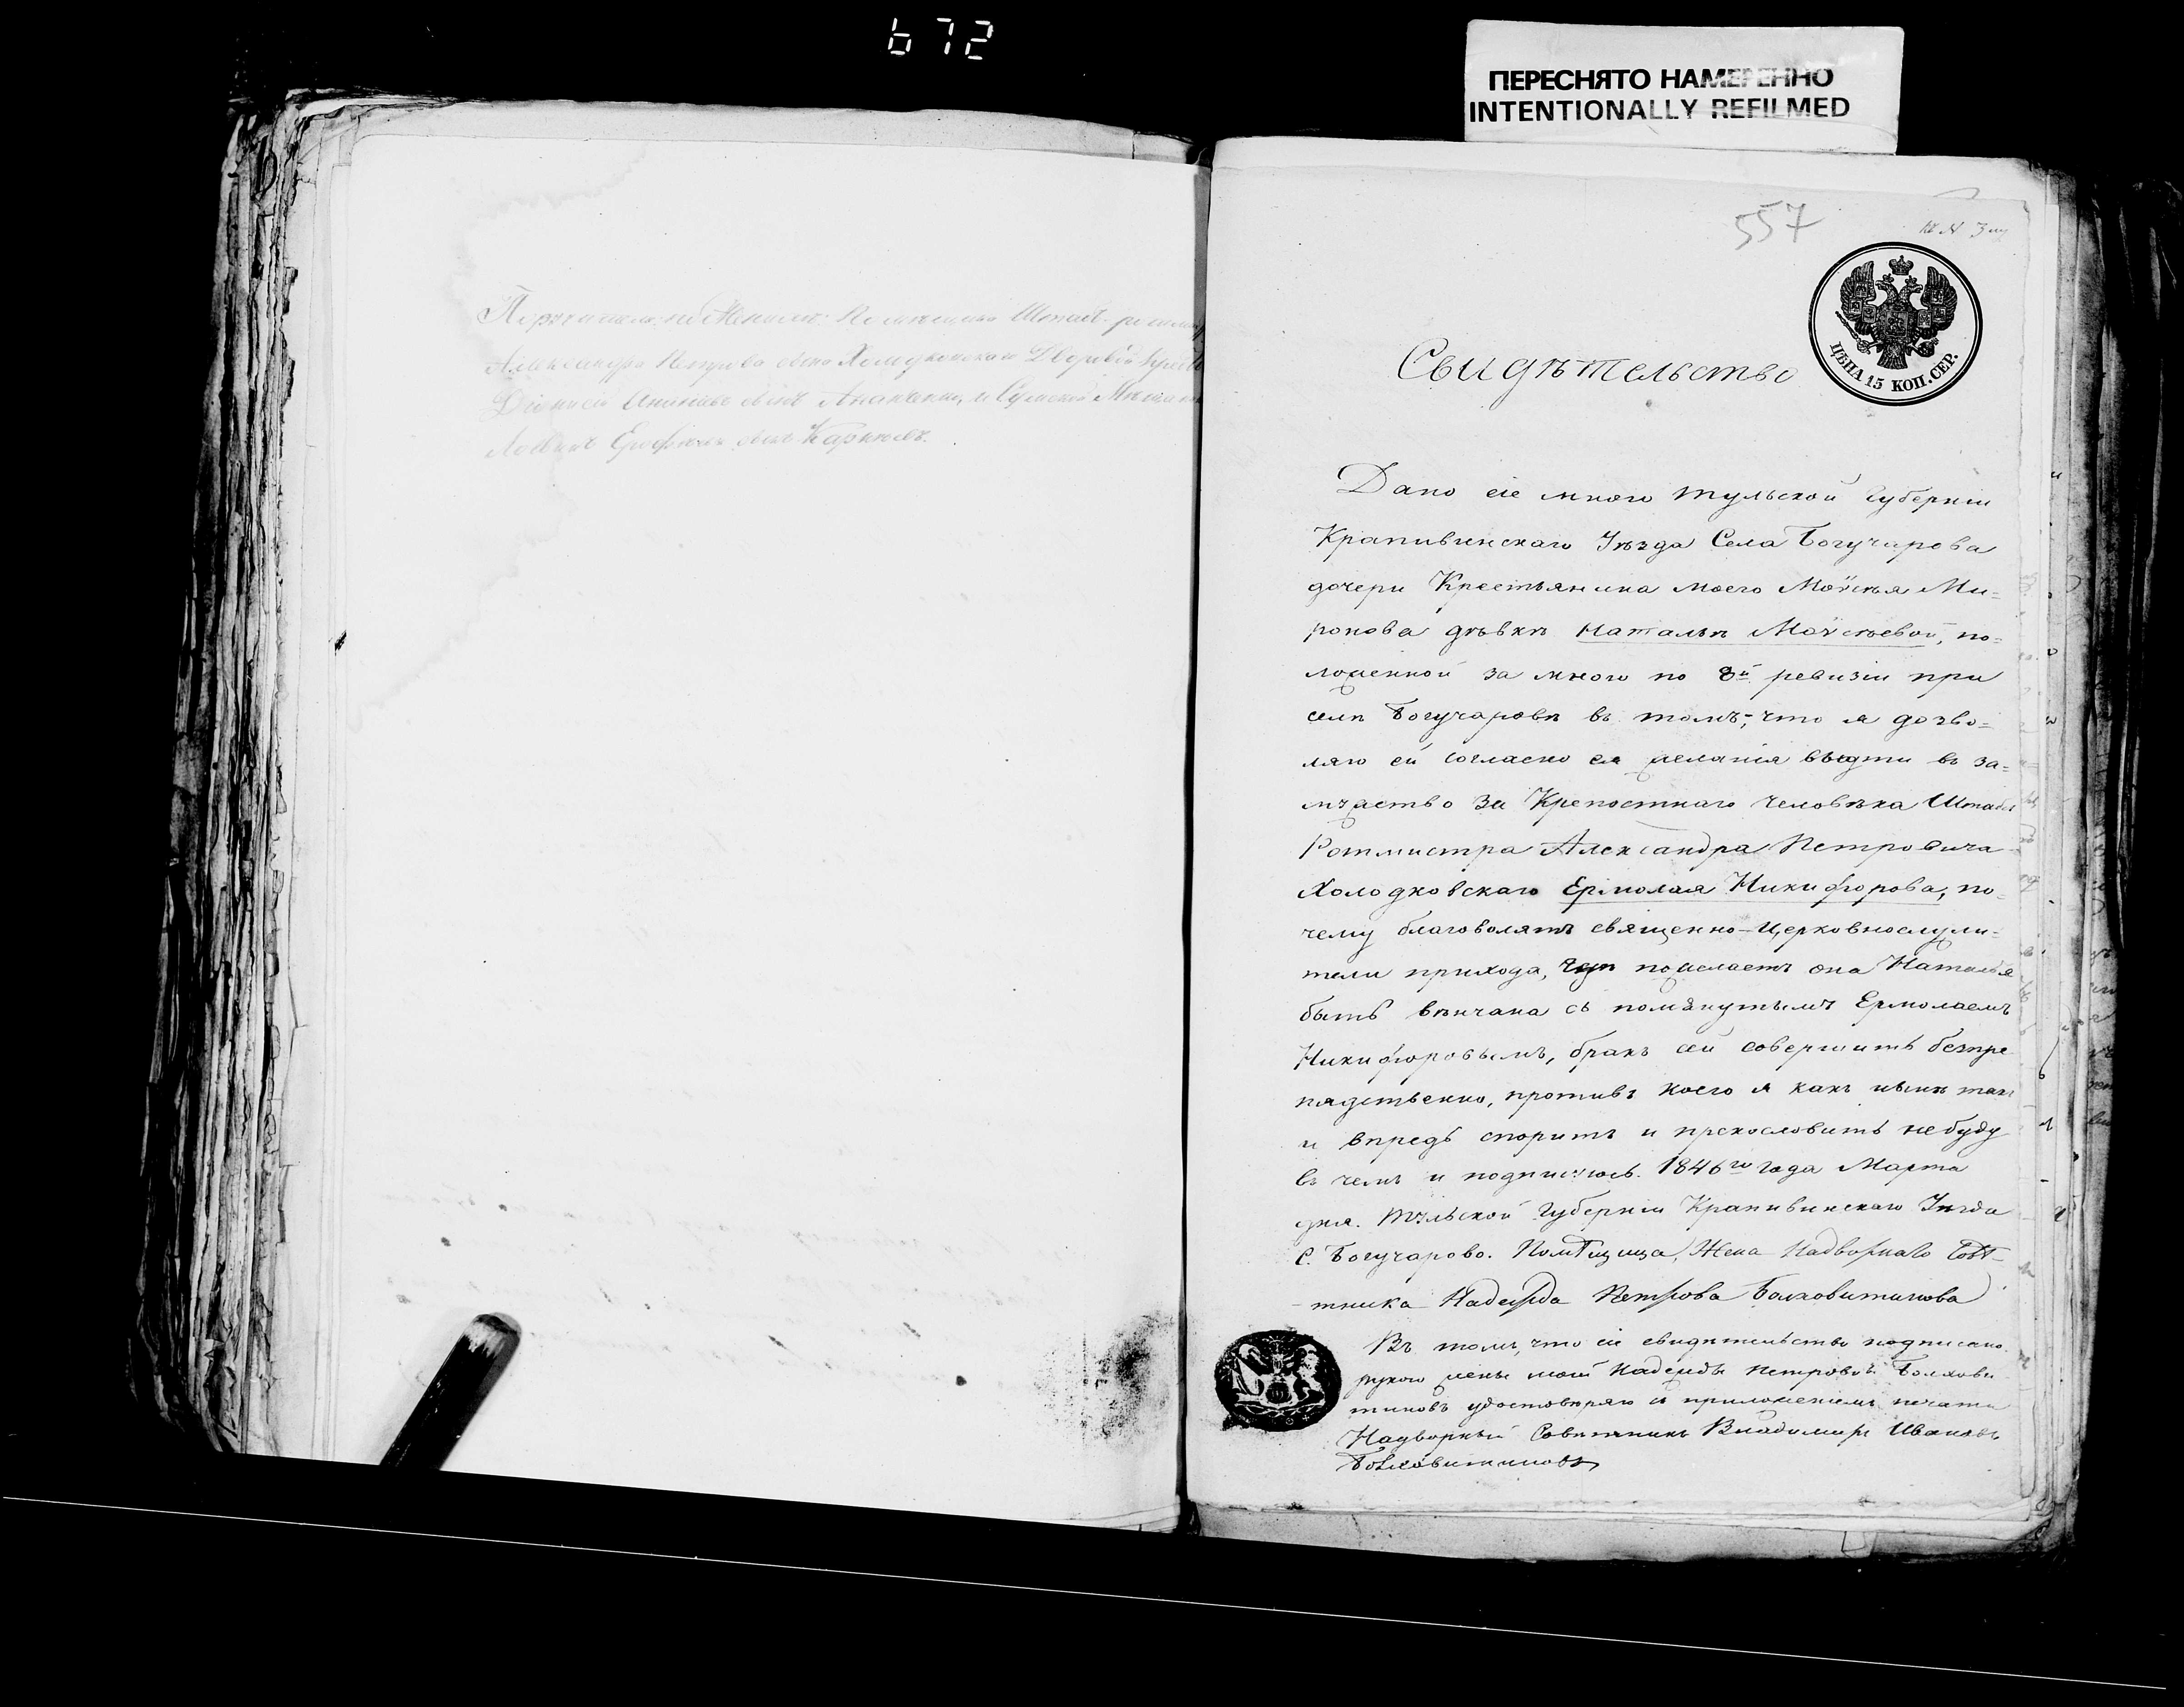 672
ПЕРЕСНЯТО НАМЕРЕННО
INTENTIONALLY REFILMED
Поручители по Женихе: Помещика Штабъ-ротмист
Александра Петрова сына Холодковскаго Дворовой
Ананченко, и Сумской Мещанин
Ерофеевъ сынъ Карповъ.
557
ЦѢНА 15 КОП. СЕР.
Свидѣтельство
Дано сіе мною Тульской Губерніи
Крапивинскаго Уѣзда Села Богучарова
дочери Крестьянина моего Моѵсѣя Ми=
ронова дѣвкѣ Натальѣ Моѵсѣевой, по=
ложенной за мною по 8й ревизіи при
селѣ Богучаровѣ въ томъ, что я дозво=
ляю ей согласно ея желанія выдти въ за=
мжаство за Крепостнаго человѣка Штабъ
Ротмистра Александра Петровича
Холодковскаго Ермолая Никифорова, по=
чему благоволятъ священно-Церковнослужи=
тели прихода, гдѣ пожелаетъ она Наталья
быть вѣнчана съ помянутымъ Ермолаемъ
Никифоровымъ, бракъ сей совершить безпре
пядственно, противъ коего я какъ нынѣ такъ
и впредь споритъ и прекословить небуду
въ чемъ и подписуюсь. 1846го года Марта
дня. Тульской Губерніи Крапивинскаго Уѣзда
С. Богучарово. Помѣщица, Жена Надворнаго Совѣ-
-тника Надежда Петрова Болховитинова
Въ томъ, что сіе свидѣтельство подписано
рукою жены моей Надежды Петровой Болхови
тиновъ удостовѣряю съ приложеніемъ печати
Надворный Совѣтникъ Владимиръ Ивановъ
Болховитиновъ